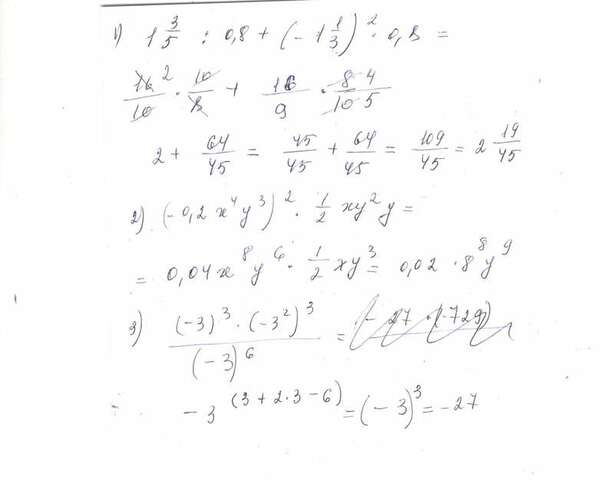 1) 1 3/5 : 0,8 + (-1 1/3)² · 0,8 =
16 2/10 · 10/8 + 16/9 · 8 4/10 5
2 + 64/45 = 45/45 + 64/45 = 109/45 = 2 19/45
2) (-0,2x⁴y³)² · 1/2 xy²y =
= 0,04x⁸y⁶ · 1/2 xy³ = 0,02 · 8⁸y⁹
3) (-3)³ · (-3²)³ / (-3)⁶ = (-27 · (-729))
-3^(3 + 2·3 - 6) = (-3)³ = -27